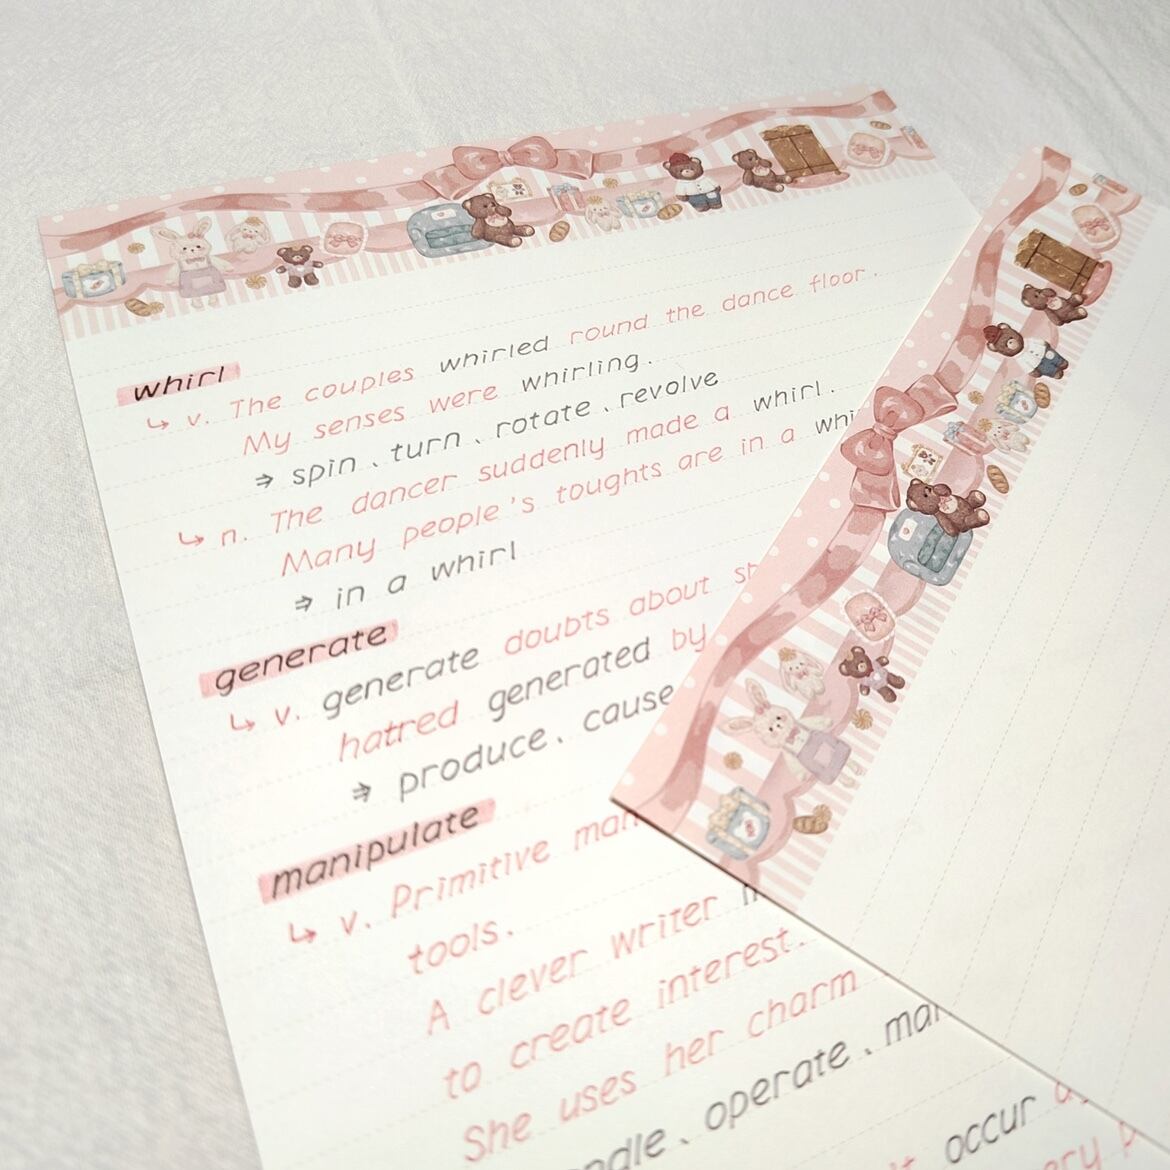 whirl
↳ v. The couples whirled round the dance floor.
My senses were whirling.
⇒ spin、turn、rotate、revolve
↳ n. The dancer suddenly made a whirl.
Many people's toughts are in a
⇒ in a whirl
generate
↳ v. generate doubts about
hatred generated by
⇒ produce、cause
manipulate
↳ v. Primitive
tools.
A clever writer
to create interest.
She uses her charm
、operate、
occur